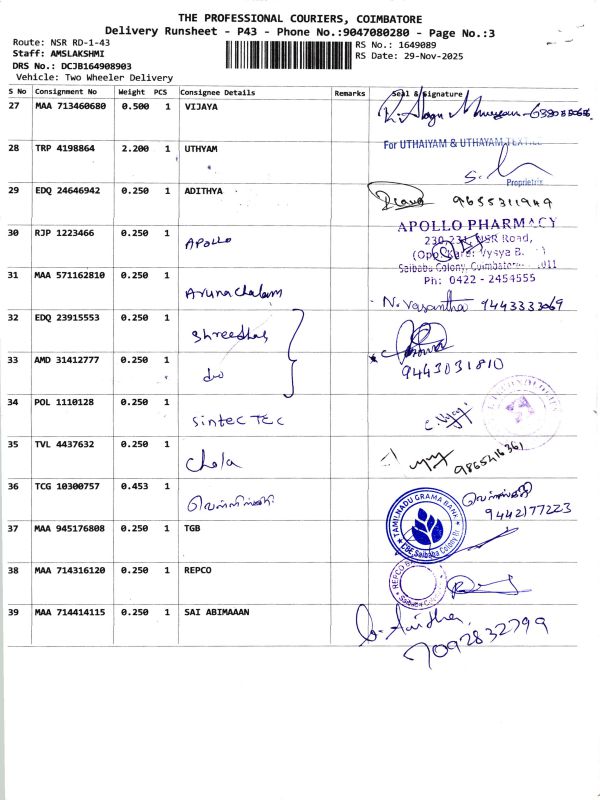 THE PROFESSIONAL COURIERS, COIMBATORE
Delivery Runsheet - P43 - Phone No.:9047080280 - Page No.:3
Route: NSR RD-1-43
Staff: AMSLAKSHMI
DRS No.: DCJB164908903
Vehicle: Two Wheeler Delivery
RS No.: 1649089
RS Date: 29-Nov-2025
S No Consignment No Weight PCS Consignee Details Remarks Seal & Signature
27 MAA 713460680 0.500 1 VIJAYA
28 TRP 4198864 2.200 1 UTHYAM
For UTHAIYAM & UTHAYAM
Proprietrix
29 EDQ 24646942 0.250 1 ADITHYA
9655311949
30 RJP 1223466 0.250 1 Apollo
APOLLO PHARMACY
NSR Road,
Saibaba Colony, Coimbatore
Ph: 0422 - 2454555
31 MAA 571162810 0.250 1 Arunachalam
N. Vasantha 9443333069
32 EDQ 23915553 0.250 1 Shreedhas
33 AMD 31412777 0.250 1 do
9443031810
34 POL 1110128 0.250 1 Sintec TEC
35 TVL 4437632 0.250 1 Chola
9865416361
36 TCG 10300757 0.453 1
9442177223
TAMILNADU GRAMA BANK
Saibaba Colony
37 MAA 945176808 0.250 1 TGB
38 MAA 714316120 0.250 1 REPCO
REPCO
39 MAA 714414115 0.250 1 SAI ABIMAAAN
7092832799